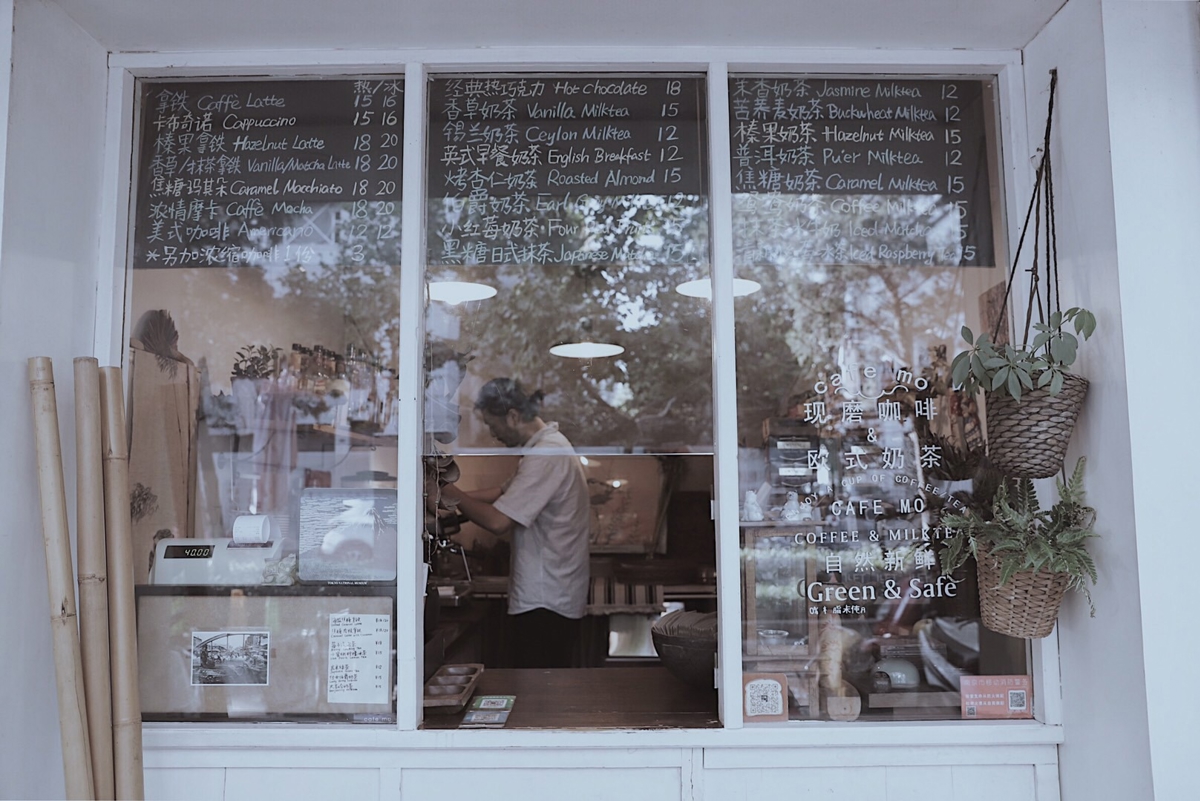 热/冰
拿铁 Caffè Latte 15 16
卡布奇诺 Cappuccino 15 16
榛果拿铁 Hazelnut Latte 18 20
香草/抹茶拿铁 Vanilla/Matcha Latte 18 20
焦糖玛其朵 Caramel Macchiato 18 20
浓情摩卡 Caffè Mocha 18 20
美式咖啡 Americano 12 12
*另加浓缩咖啡1份 3
经典热巧克力 Hot chocolate 18
香草奶茶 Vanilla Milktea 15
锡兰奶茶 Ceylon Milktea 12
英式早餐奶茶 English Breakfast 12
烤杏仁奶茶 Roasted Almond 15
伯爵奶茶 Earl 12
小红莓奶茶 Four Red 15
黑糖日式抹茶 Japanese 15
奶茶 Jasmine Milktea 12
苦荞麦奶茶 Buckwheat Milktea 12
榛果奶茶 Hazelnut Milktea 15
普洱奶茶 Pu'er Milktea 12
焦糖奶茶 Caramel Milktea 15
Coffee Milktea 15
Iced Matcha 15
Iced Raspberry 15
cafe mo
现磨咖啡
&
欧式奶茶
A CUP OF COFFEE TEA
CAFE MO
COFFEE & MILKTEA
自然新鲜
Green & Safe
4000